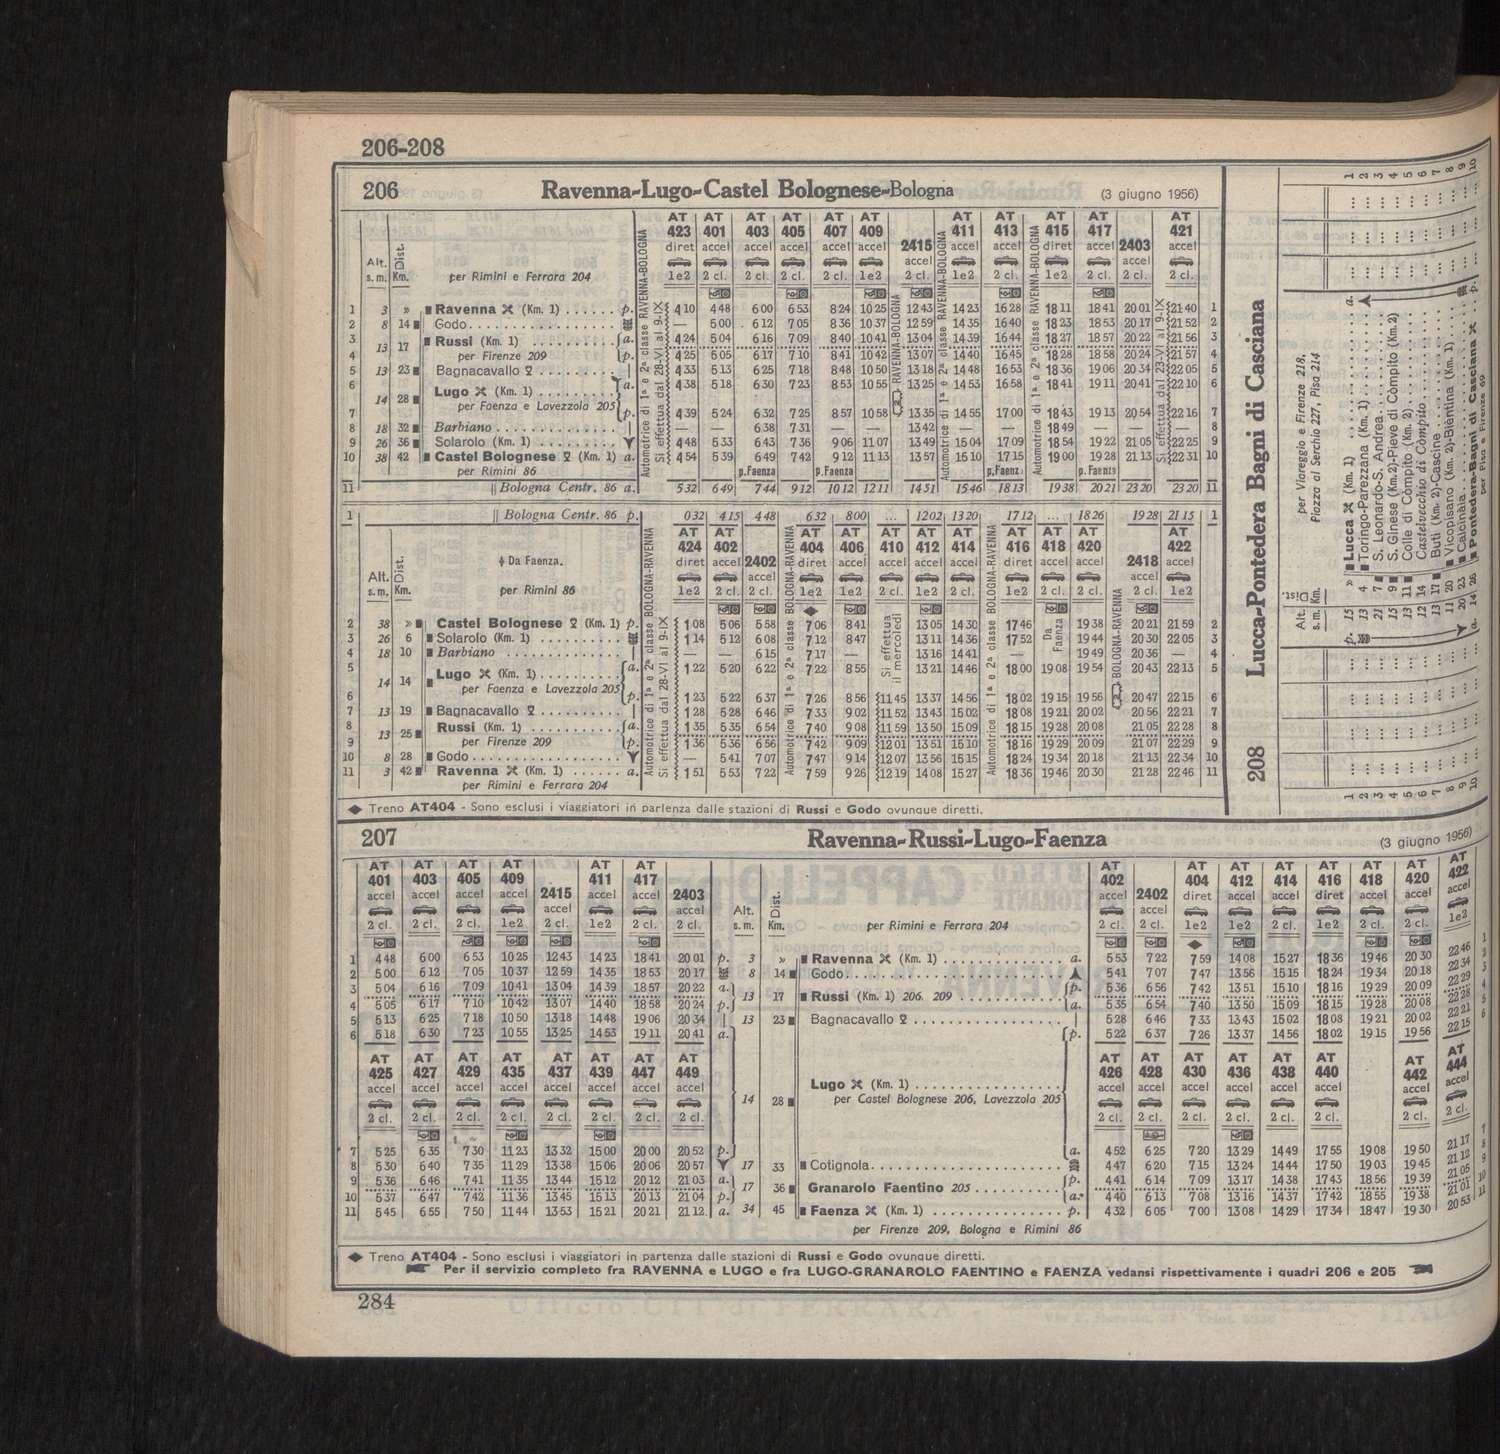 206-208
206 Ravenna-Lugo-Castel Bolognese-Bologna (3 giugno 1956)
AT AT AT AT AT AT AT AT AT AT AT
423 401 403 405 407 409 2415 411 413 415 417 2403 421
diret accel accel accel accel accel accel accel accel diret accel accel accel
Alt. s.m. Dist. Km. per Rimini e Ferrara 204 1e2 2 cl. 2 cl. 2 cl. 2 cl. 1e2 2 cl. 1e2 2 cl. 1e2 2 cl. 2 cl. 2 cl.
Automotrice di 1ª e 2ª classe RAVENNA-BOLOGNA
Si effettua dal 28-VI al 9-IX
RAVENNA-BOLOGNA
Automotrice di 1ª e 2ª classe RAVENNA-BOLOGNA
Automotrice di 1ª e 2ª classe RAVENNA-BOLOGNA
Si effettua dal 23-VI al 9-IX
1 3 » Ravenna (Km. 1) p. 4 10 4 48 6 00 6 53 8 24 10 25 12 43 14 23 16 28 18 11 18 41 20 01 21 40 1
2 8 14 Godo — 5 00 6 12 7 05 8 36 10 37 12 59 14 35 16 40 18 23 18 53 20 17 21 52 2
3 13 17 Russi (Km. 1) a. 4 24 5 04 6 16 7 09 8 40 10 41 13 04 14 39 16 44 18 27 18 57 20 22 21 56 3
4 per Firenze 209 p. 4 25 5 05 6 17 7 10 8 41 10 42 13 07 14 40 16 45 18 28 18 58 20 24 21 57 4
5 13 23 Bagnacavallo 4 33 5 13 6 25 7 18 8 48 10 50 13 18 14 48 16 53 18 36 19 06 20 34 22 05 5
6 14 28 Lugo (Km. 1) a. 4 38 5 18 6 30 7 23 8 53 10 55 13 25 14 53 16 58 18 41 19 11 20 41 22 10 6
7 per Faenza e Lavezzola 205 p. 4 39 5 24 6 32 7 25 8 57 10 58 13 35 14 55 17 00 18 43 19 13 20 54 22 16 7
8 18 32 Barbiano — — 6 38 7 31 — — 13 42 — — 18 49 — — — 8
9 26 36 Solarolo (Km. 1) 4 48 5 33 6 43 7 36 9 06 11 07 13 49 15 04 17 09 18 54 19 22 21 05 22 25 9
10 38 42 Castel Bolognese (Km. 1) a. 4 54 5 39 6 49 7 42 9 12 11 13 13 57 15 10 17 15 19 00 19 28 21 13 22 31 10
per Rimini 86 p. Faenza p. Faenza p. Faenz. p. Faenza
11 Bologna Centr. 86 a. 5 32 6 49 7 44 9 12 10 12 12 11 14 51 15 46 18 13 19 38 20 21 23 20 23 20 11
1 Bologna Centr. 86 p. 0 32 4 15 4 48 6 32 8 00 ... 12 02 13 20 17 12 ... 18 26 19 28 21 15 1
AT AT AT AT AT AT AT AT AT AT AT
424 402 2402 404 406 410 412 414 416 418 420 2418 422
Da Faenza. diret accel accel diret accel accel accel accel diret accel accel accel accel
Alt. s.m. Dist. Km. per Rimini 86 1e2 2 cl. 2 cl. 1e2 1e2 2 cl. 2 cl. 1e2 1e2 2 cl. 2 cl. 2 cl. 1e2
Automotrice di 1ª e 2ª classe BOLOGNA-RAVENNA
Si effettua dal 28-VI al 9-IX
Automotrice di 1ª e 2ª classe BOLOGNA-RAVENNA
Si effettua il mercoledì
Automotrice di 1ª e 2ª classe BOLOGNA-RAVENNA
Da Faenza
BOLOGNA-RAVENNA
2 38 » Castel Bolognese (Km. 1) p. 1 08 5 06 5 58 7 06 8 41 13 05 14 30 17 46 19 38 20 21 21 59 2
3 26 6 Solarolo (Km. 1) 1 14 5 12 6 08 7 12 8 47 13 11 14 36 17 52 19 44 20 30 22 05 3
4 18 10 Barbiano — — 6 15 7 17 — 13 16 14 41 — 19 49 20 36 — 4
5 14 14 Lugo (Km. 1) a. 1 22 5 20 6 22 7 22 8 55 13 21 14 46 18 00 19 08 19 54 20 43 22 13 5
6 per Faenza e Lavezzola 205 p. 1 23 5 22 6 37 7 26 8 56 11 45 13 37 14 56 18 02 19 15 19 56 20 47 22 15 6
7 13 19 Bagnacavallo 1 28 5 28 6 46 7 33 9 02 11 52 13 43 15 02 18 08 19 21 20 02 20 56 22 21 7
8 13 25 Russi (Km. 1) a. 1 35 5 35 6 54 7 40 9 08 11 59 13 50 15 09 18 15 19 28 20 08 21 05 22 28 8
9 per Firenze 209 p. 1 36 5 36 6 56 7 42 9 09 12 01 13 51 15 10 18 16 19 29 20 09 21 07 22 29 9
10 8 28 Godo — 5 41 7 07 7 47 9 14 12 07 13 56 15 15 18 24 19 34 20 18 21 13 22 34 10
11 3 42 Ravenna (Km. 1) a. 1 51 5 53 7 22 7 59 9 26 12 19 14 08 15 27 18 36 19 46 20 30 21 28 22 46 11
per Rimini e Ferrara 204
◆ Treno AT404 - Sono esclusi i viaggiatori in partenza dalle stazioni di Russi e Godo ovunque diretti.
208 Lucca-Pontedera Bagni di Casciana
per Viareggio e Firenze 218,
Piazza al Serchio 227, Pisa 214
Alt. s.m. Dist. Km.
1 15 » Lucca (Km. 1) a. 1
2 13 4 Toringo-Parezzana (Km. 1) 2
3 21 7 S. Leonardo-S. Andrea 3
4 15 9 S. Ginese (Km. 2)-Pieve di Còmpito (Km. 2) 4
5 13 11 Colle di Còmpito (Km. 2) 5
6 12 14 Castelvecchio di Còmpito 6
7 13 17 Buti (Km. 2)-Cascine 7
8 11 20 Vicopisano (Km. 2)-Bièntina (Km. 1) 8
9 20 23 Calcinàia 9
10 14 28 Pontedera-Bagni di Casciana p. 10
per Pisa e Firenze 69
207 Ravenna-Russi-Lugo-Faenza (3 giugno 1956)
AT AT AT AT AT AT
401 403 405 409 2415 411 417 2403
accel accel accel accel accel accel accel accel
2 cl. 2 cl. 2 cl. 1e2 2 cl. 1e2 2 cl. 2 cl.
Alt. s.m. Dist. Km. per Rimini e Ferrara 204
AT AT AT AT AT AT AT AT
402 2402 404 412 414 416 418 420 422
accel accel diret accel accel diret accel accel accel
2 cl. 2 cl. 1e2 2 cl. 1e2 1e2 2 cl. 2 cl. 1e2
1 4 48 6 00 6 53 10 25 12 43 14 23 18 41 20 01 p. 3 » Ravenna (Km. 1) a. 5 53 7 22 7 59 14 08 15 27 18 36 19 46 20 30 22 46 1
2 5 00 6 12 7 05 10 37 12 59 14 35 18 53 20 17 8 14 Godo 5 41 7 07 7 47 13 56 15 15 18 24 19 34 20 18 22 34 2
3 5 04 6 16 7 09 10 41 13 04 14 39 18 57 20 22 a. 13 17 Russi (Km. 1) 206. 209 p. 5 36 6 56 7 42 13 51 15 10 18 16 19 29 20 09 22 29 3
4 5 05 6 17 7 10 10 42 13 07 14 40 18 58 20 24 p. a. 5 35 6 54 7 40 13 50 15 09 18 15 19 28 20 08 22 28 4
5 5 13 6 25 7 18 10 50 13 18 14 48 19 06 20 34 13 23 Bagnacavallo 5 28 6 46 7 33 13 43 15 02 18 08 19 21 20 02 22 21 5
6 5 18 6 30 7 23 10 55 13 25 14 53 19 11 20 41 a. p. 5 22 6 37 7 26 13 37 14 56 18 02 19 15 19 56 22 15 6
AT AT AT AT AT AT AT AT
425 427 429 435 437 439 447 449
accel accel accel accel accel accel accel accel
2 cl. 2 cl. 2 cl. 2 cl. 2 cl. 2 cl. 2 cl. 2 cl.
14 28 Lugo (Km. 1)
per Castel Bolognese 206, Lavezzola 205
AT AT AT AT AT AT AT AT
426 428 430 436 438 440 442 444
accel accel accel accel accel accel accel accel
2 cl. 2 cl. 2 cl. 2 cl. 2 cl. 2 cl. 2 cl. 2 cl.
7 5 25 6 35 7 30 11 23 13 32 15 00 20 00 20 52 p. a. 4 52 6 25 7 20 13 29 14 49 17 55 19 08 19 50 21 17 7
8 5 30 6 40 7 35 11 29 13 38 15 06 20 06 20 57 17 33 Cotignola 4 47 6 20 7 15 13 24 14 44 17 50 19 03 19 45 21 12 8
9 5 36 6 46 7 41 11 35 13 44 15 12 20 12 21 03 a. 17 36 Granarolo Faentino 205 p. 4 41 6 14 7 09 13 17 14 38 17 43 18 56 19 39 21 05 9
10 5 37 6 47 7 42 11 36 13 45 15 13 20 13 21 04 p. a. 4 40 6 13 7 08 13 16 14 37 17 42 18 55 19 38 21 01 10
11 5 45 6 55 7 50 11 44 13 53 15 21 20 21 21 12 a. 34 45 Faenza (Km. 1) p. 4 32 6 05 7 00 13 08 14 29 17 34 18 47 19 30 20 53 11
per Firenze 209, Bologna e Rimini 86
◆ Treno AT404 - Sono esclusi i viaggiatori in partenza dalle stazioni di Russi e Godo ovunque diretti.
Per il servizio completo fra RAVENNA e LUGO e fra LUGO-GRANAROLO FAENTINO e FAENZA vedansi rispettivamente i quadri 206 e 205
284